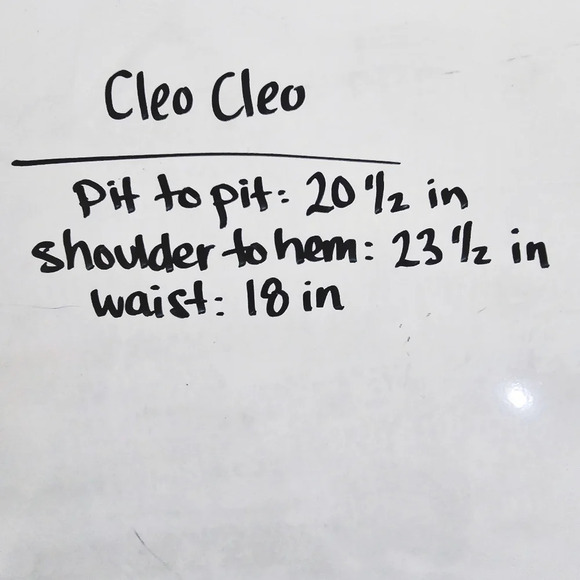 Cleo Cleo
Pit to pit: 20 1/2 in
shoulder to hem: 23 1/2 in
waist: 18 in